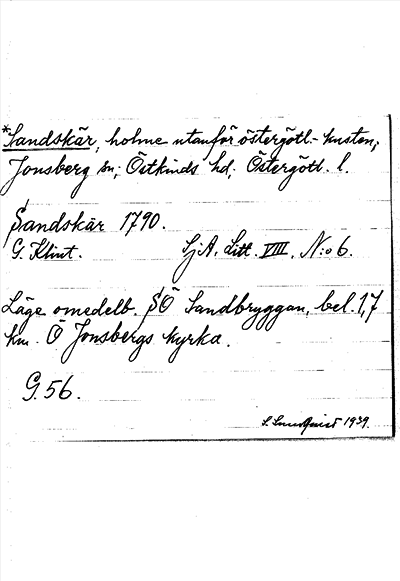 *Sandskär, holme utanför östergötl.-kusten,
Jonsberg sn; Östkinds hd; Östergötl. l.
Sandskär 1790.
G. Klint. SjA. Litt. VIII. N:o 6.
Läge omedelb. SÖ Sandbryggan, bel. 1,7
km. Ö Jonsbergs kyrka.
G. 56.
S. Sundqvist 1939.